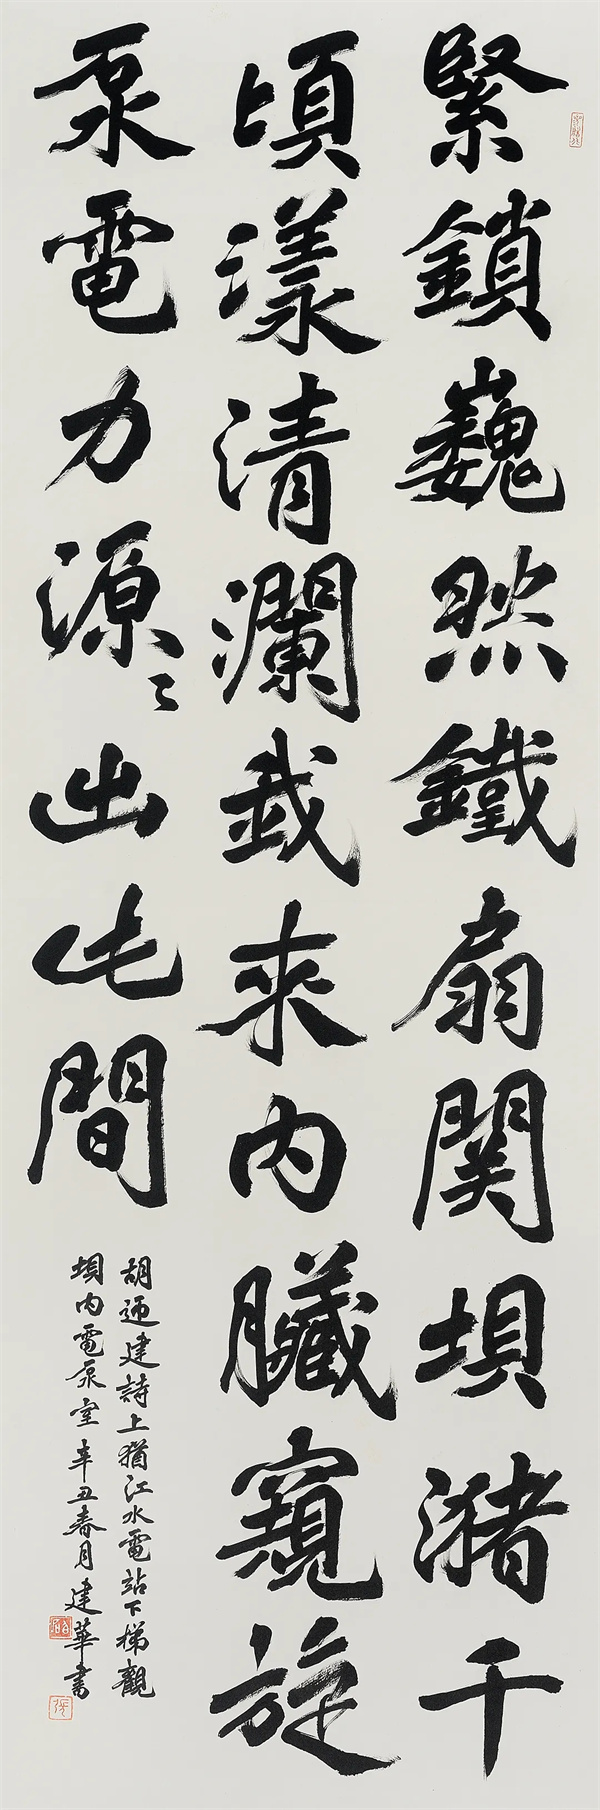 緊鎖巍然鐵扇関垻潴千
頃漾清瀾我来内臟窺旋
泵電力源〻出此間
胡迎建詩上猶江水電站下梯觀
垻内電泵室 辛丑春月建華書